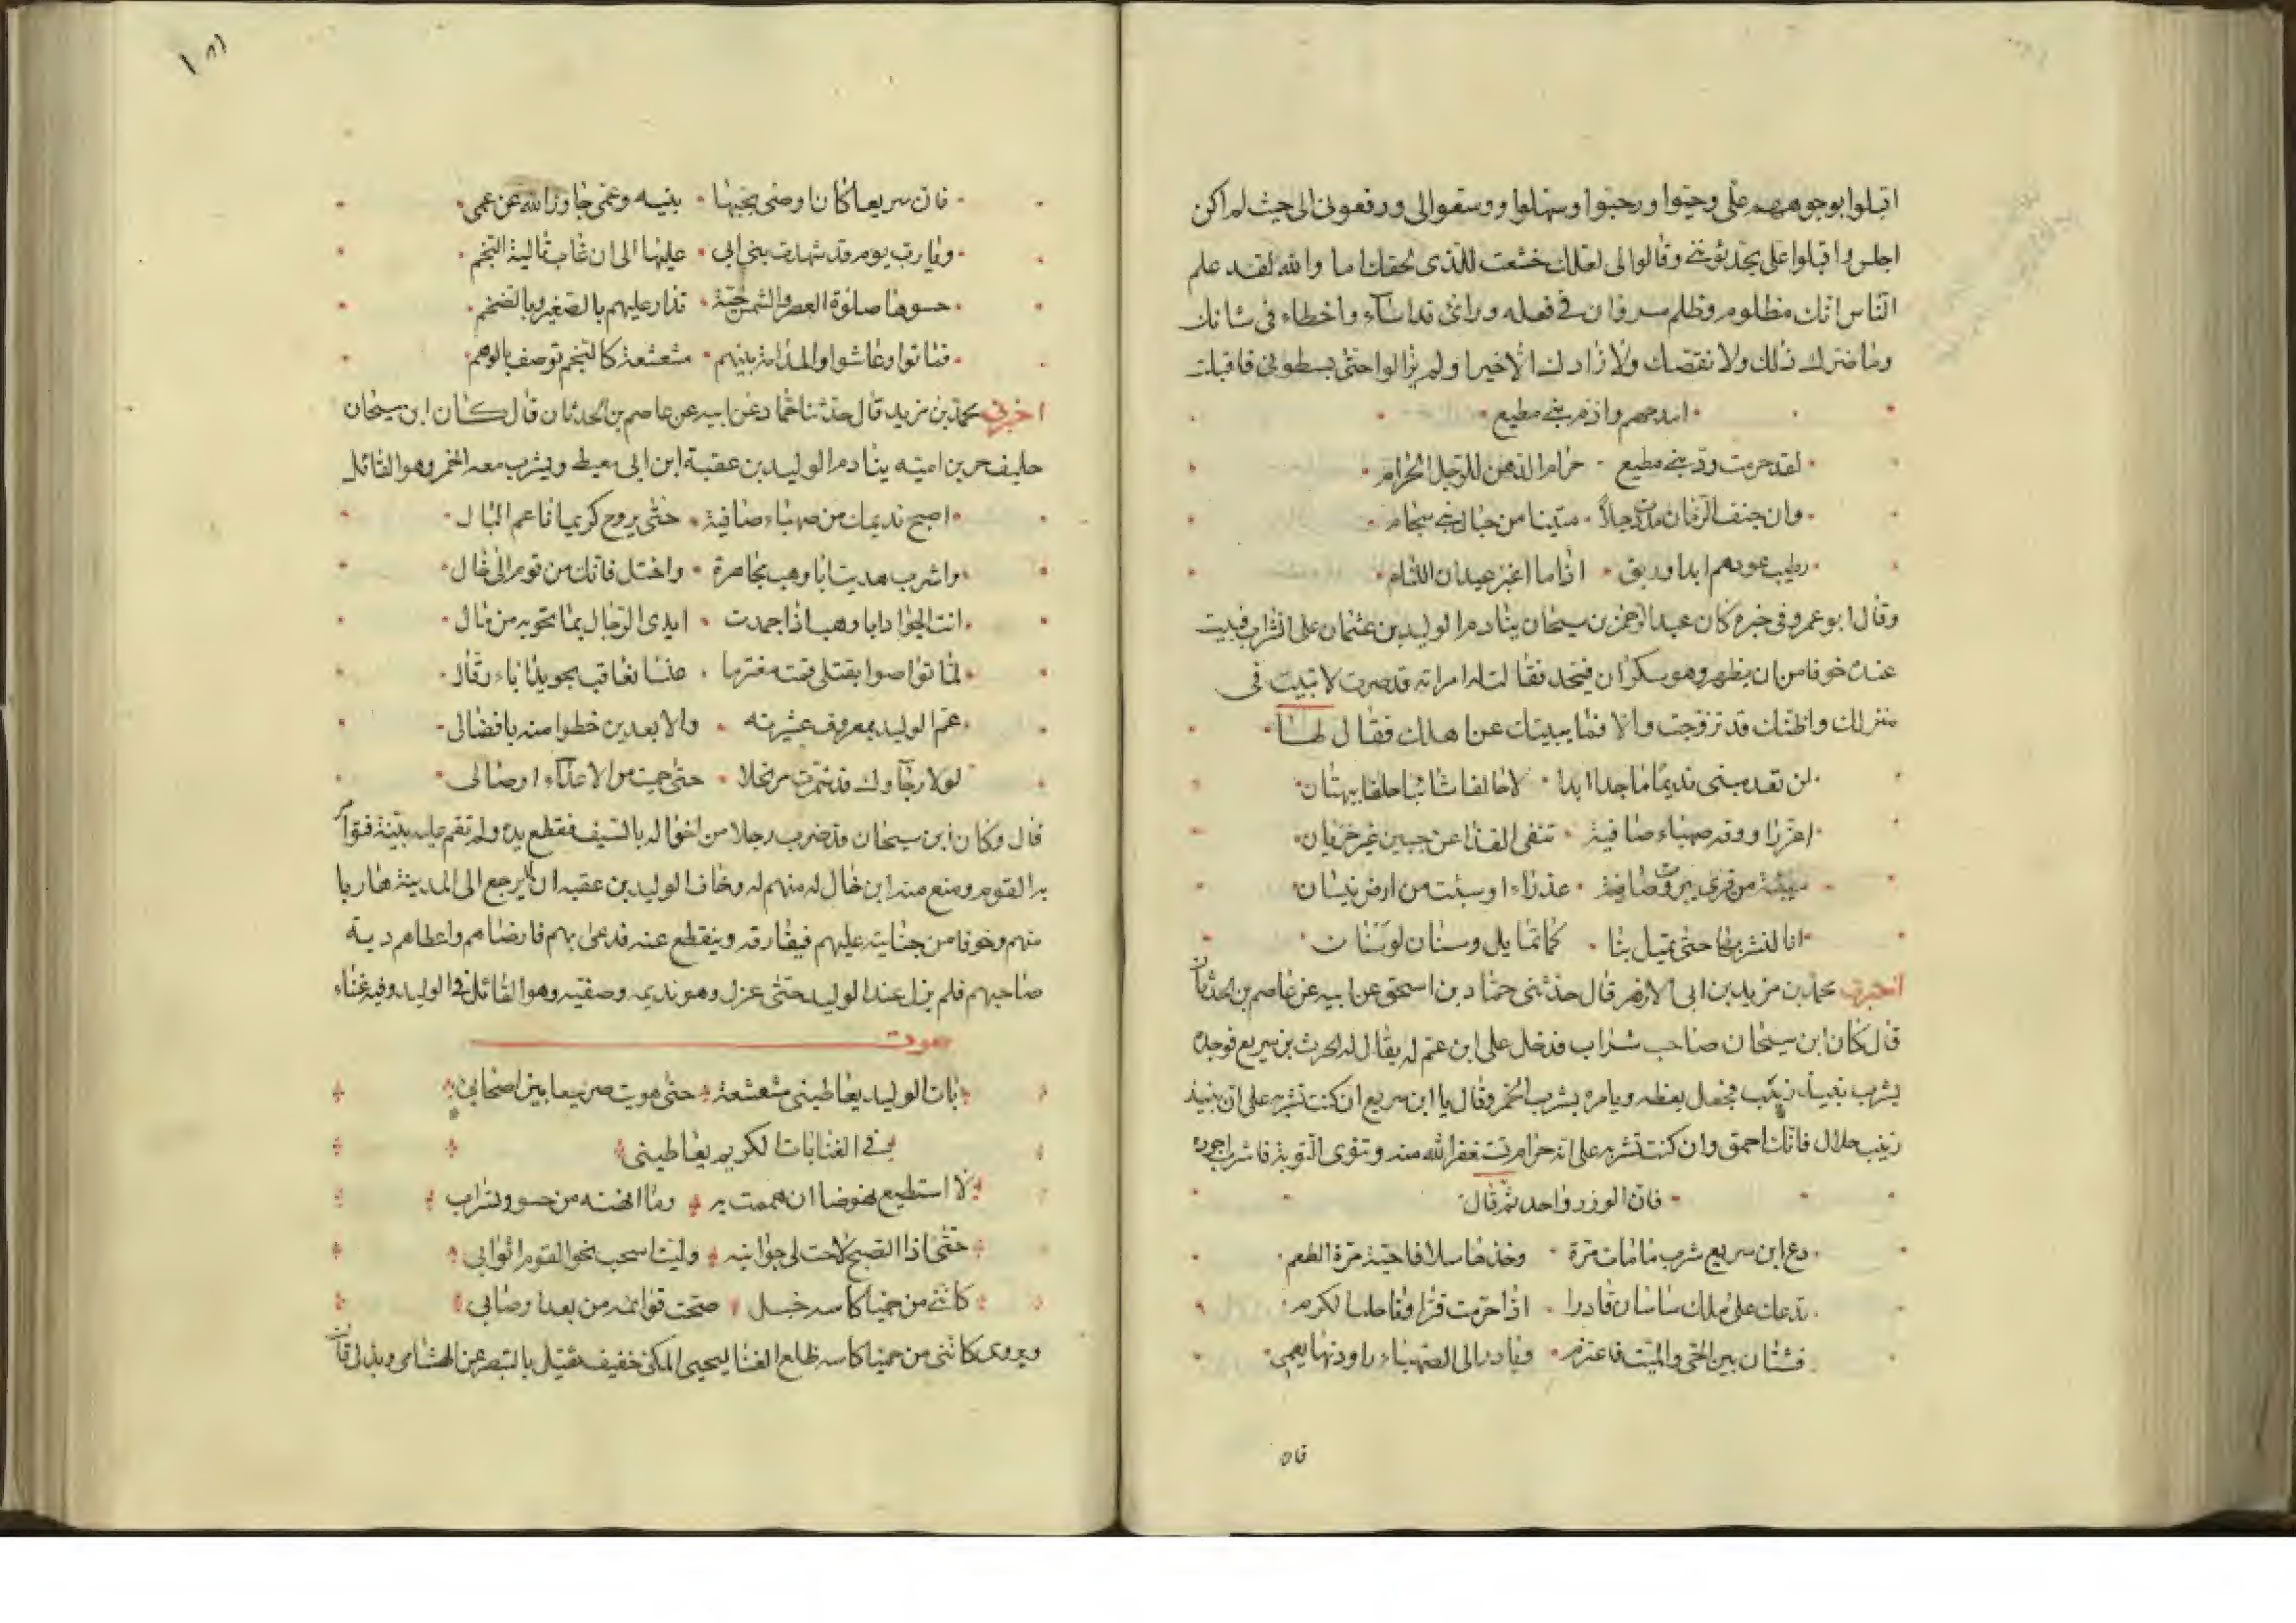 اقبلوا بوجوههم على وحيوا ورحبوا وسهلوا ووسقوا لى ورفعونى الى حيث لم اكن
اجلس واقبلوا على بحديثهم وقالوا لى لعلك خشعت للذى لحقك اما والله لقد علم
الناس انك مظلوم وظلم مروان فى فعله وراى قد اساء واخطاء فى شانك
وما ضرك ذلك ولا نقصك ولا زادك الا خيرا ولم يزالوا حتى بسطونى فاقبلت
امدحهم واذم بنى مطيع
لقد حرمت ود بنى مطيع حرام الدهن للرجل الحرام
وان جنف الزمان مددت حبلا متينا من حبال بنى
رطيب عودهم ابدا وريق اذا ما اغبر عيدان اللئام
وقال ابو عمرو فى خبره كان عبد الرحمن بن سيحان ينادم الوليد بن عثمان على الشراب فيبيت
عنده خوفا من ان يظهر وهو سكران فيحد فقالت له امراته قد صرت لا تبيت فى
منزلك واظنك قد تزوجت والا فما يبيتك عن اهلك فقال لها
لن تعدمينى نديما ماجدا ابدا لا خالفا خلفا ببهتان
اغر راووقه صهباء صافية تنفى القذا عن جبين غير خزيان
سبيئة من قرى بيروت صافية عذراء او سبئت من ارض بيسان
انا لنشربها حتى تميل بنا كما تمايل وسنان لوسنان
اخبرنى محمد بن مزيد بن ابى الازهر قال حدثنى حماد بن اسحق عن ابيه عن عاصم بن الحدثان
قال كان ابن سيحان صاحب شراب فدخل على ابن عم له يقال له الحرث بن سريع فوجده
يشرب نبيذ زبيب فجعل يعظه ويامره بشرب الخمر وقال يا ابن سريع ان كنت تشربه على ان نبيذ
زبيب حلال فانك احمق وان كنت تشربه على انه حرام تستغفر الله منه وتنوى التوبة فاشرب اجوده
فان الوزر واحد ثم قال
دع ابن سريع شرب ما مات مرة وخذها سلافا حية مزة الطعم
تدعك على ملك ساسان قادرا اذا حرمت قراوها حلب الكرم
فشتان بين الحى والميت فاعتزم وبادر الى الصهباء راووقها يهمى
فان
١٨١
فان سريعا كان اوصى بحبها بنيه وعمى جاوز الله عن عمى
ويا رب يوم قد شهدت بنى ابى عليها الى ان غاب تالية النجم
حسوها صلوة العصر والشمس حية تدار عليهم بالصغير وبالضخم
فماتوا وعاشوا والمدامة بينهم مشعشعة كالنجم توصف بالوهم
اخبرنى محمد بن مزيد قال حدثنا حماد عن ابيه عن عاصم بن الحدثان قال كان ابن سيحان
حليف حرب بن امية ينادم الوليد بن عقبة ابن ابى معيط ويشرب معه الخمر وهو القائل
اصبح نديمك من صهباء صافية حتى يروح كريما ناعم البال
واشرب هديت ابا وهب مجاهرة واختل فانك من قوم الى خال
انت الجواد ابا وهب اذا جمدت ايدى الرجال بما تحويه من مال
لما تواصوا بقتلى قمت معتزما
عم الوليد بمعروف عشيرته والابعدين حظوا منه بافضالى
لولا رجاوك قد شمرت مرتحلا
قال وكان ابن سيحان قد ضرب رجلا من اخواله بالسيف فقطع يده ولم تقم عليه بينة
به القوم ومنع منه ابن خال له منهم له وخاف الوليد بن عقبه ان لا يرجع الى المدينة هاربا
منهم وخوفا من جنايته عليهم فيفارقه وينقطع عنه فدعى بهم فارضاهم واعطاهم دية
صاحبهم فلم يزل عند الوليد حتى عزل وهو نديمه وصفيه وهو القائل فى الوليد وفيه غناء
صوت
بات الوليد يعاطينى مشعشعة حتى هويت صريعا بين اصحابى
فى الغنا بات الكريم يعاطينى
لا استطيع نهوضا ان هممت به وما انهنه من حسو وتشراب
حتى اذا الصبح لاحت لى جوانبه وليت اسحب نحو القوم اثوابى
كاننى من حميا كاسه جمل صحت قوائمه من بعد اوصابى
ويروى كاننى من حميا كاسه ظلع الغنا ليحيى المكى خفيف ثقيل بالبنصر عن الهشامى وبذل قال